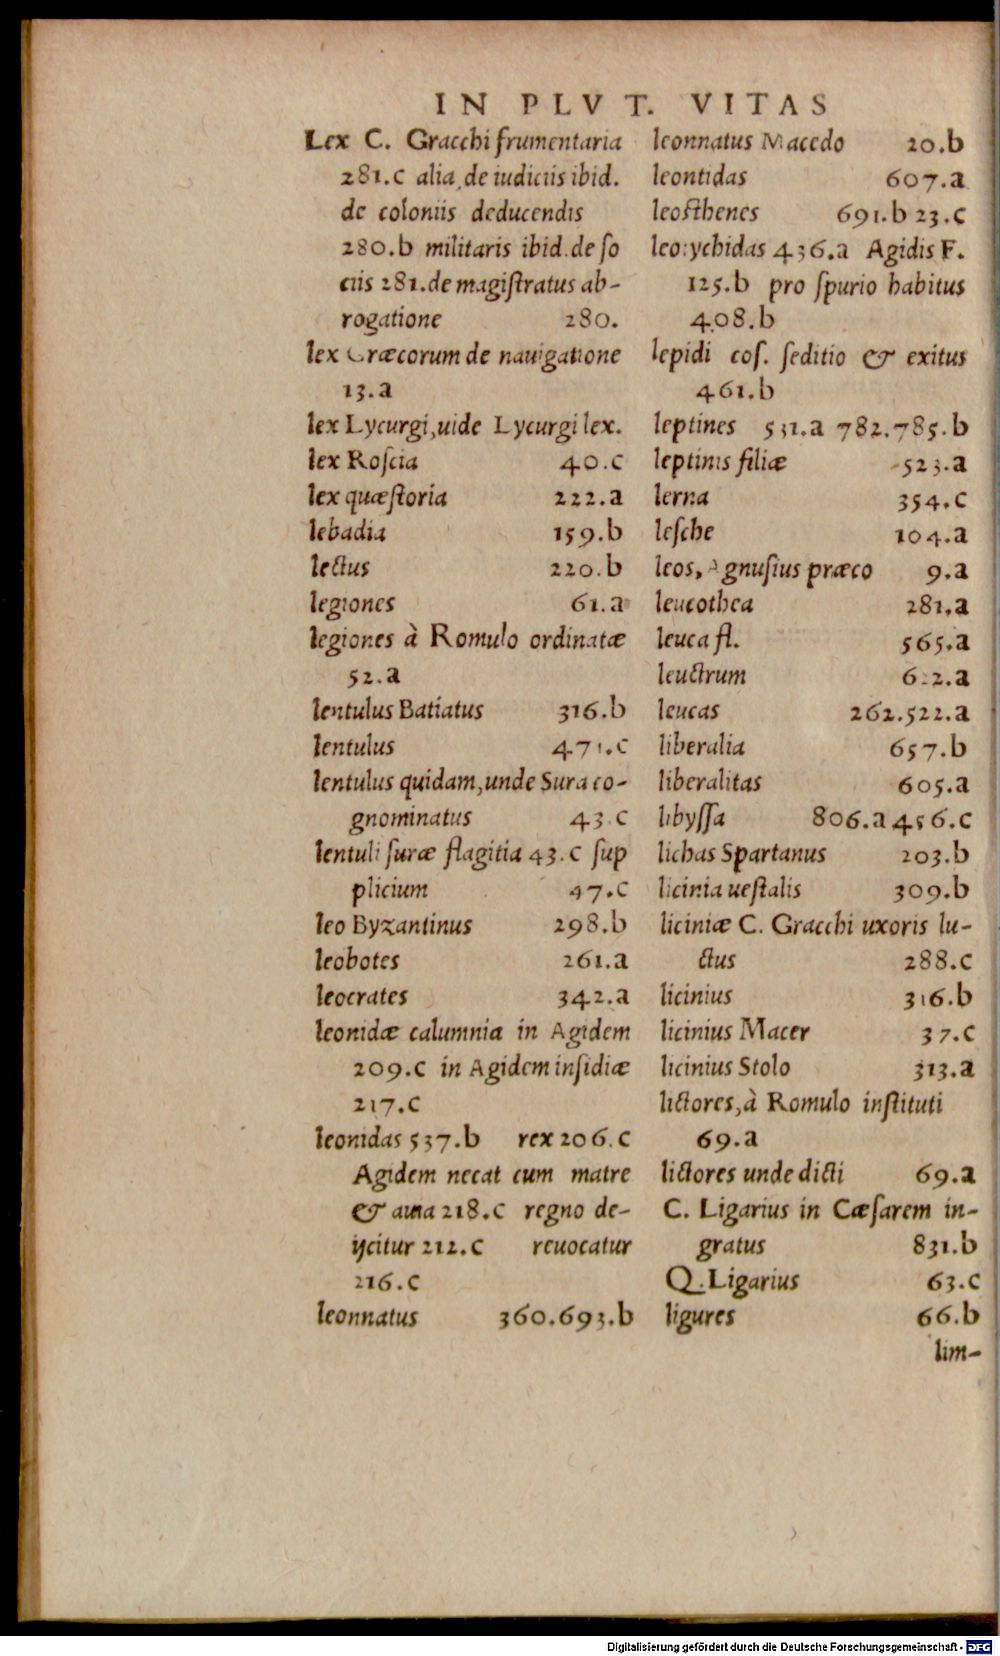 IN PLVT. VITAS
Lex C. Gracchi frumentaria
281.c alia de iudiciis ibid.
de coloniis deducendis
280.b militaris ibid. de ſo
ciis 281. de magiſtratus ab-
rogatione 280.
lex Græcorum de nauigatione
13.a
lex Lycurgi, uide Lycurgi lex.
lex Roſcia 40.c
lex quæſtoria 222.a
lebadia 159.b
lectus 220.b
legiones 61.a
legiones à Romulo ordinatæ
52.a
lentulus Batiatus 316.b
lentulus 471.c
lentulus quidam, unde Sura co-
gnominatus 43.c
lentuli ſuræ flagitia 43.c ſup
plicium 47.c
leo Byzantinus 298.b
leobotes 261.a
leocrates 342.a
leonidæ calumnia in Agidem
209.c in Agidem inſidiæ
217.c
leonidas 537.b rex 206.c
Agidem necat cum matre
& auia 218.c regno de-
ijcitur 212.c reuocatur
216.c
leonnatus 360.693.b
leonnatus Macedo 20.b
leontidas 607.a
leoſthenes 691.b 23.c
leotychidas 436.a Agidis F.
125.b pro ſpurio habitus
408.b
lepidi coſ. ſeditio & exitus
461.b
leptines 531.a 782.785.b
leptinis filiæ 523.a
lerna 354.c
leſche 104.a
leos, Agnuſius præco 9.a
leucothea 281.a
leuca fl. 565.a
leuctrum 622.a
leucas 262.522.a
liberalia 657.b
liberalitas 605.a
libyſſa 806.a 456.c
lichas Spartanus 203.b
licinia ueſtalis 309.b
liciniæ C. Gracchi uxoris lu-
ctus 288.c
licinius 316.b
licinius Macer 37.c
licinius Stolo 313.a
lictores, à Romulo inſtituti
69.a
lictores unde dicti 69.a
C. Ligarius in Cæſarem in-
gratus 831.b
Q. Ligarius 63.c
ligures 66.b
lim-
Digitalisierung gefördert durch die Deutsche Forschungsgemeinschaft - DFG